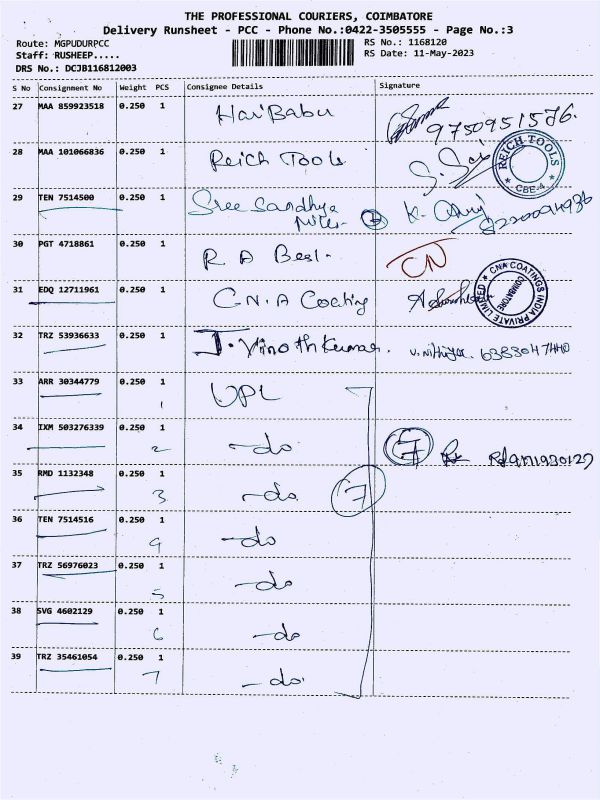 THE PROFESSIONAL COURIERS, COIMBATORE
Delivery Runsheet - PCC - Phone No.:0422-3505555 - Page No.:3
Route: MGPUDURPCC RS No.: 1168120
Staff: RUSHEEP..... RS Date: 11-May-2023
DRS No.: DCJB116812003
S No Consignment No Weight PCS Consignee Details Signature
27 MAA 859923518 0.250 1 Hari Babu 9750951526.
28 MAA 101066836 0.250 1 Reich Tools REICH-TOOLS CBE-4
29 TEN 7514500 0.250 1 Sree Sandhya Mills K.
30 PGT 4718861 0.250 1 R A Best. CN
31 EDQ 12711961 0.250 1 C.N.A Coating CNA COATINGS INDIA PRIVATE LIMITED COIMBATORE
32 TRZ 53936633 0.250 1 J. Vinothkumar.
33 ARR 30344779 0.250 1 UPL
1
34 IXM 503276339 0.250 1 -do 7
2
35 RMD 1132348 0.250 1 -do. 7
3
36 TEN 7514516 0.250 1 -do
4
37 TRZ 56976023 0.250 1 -do
5
38 SVG 4602129 0.250 1 -do
6
39 TRZ 35461054 0.250 1 -do.
7